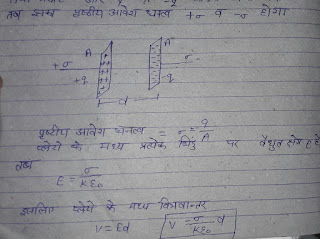 तब इनके पृष्ठीय आवेश घनत्व +σ व -σ होगा
A A
+σ -σ
+q -q
d
पृष्ठीय आवेश घनत्व = σ = q/A
प्लेटों के मध्य प्रत्येक बिंदु पर वैधुत क्षेत्र
तब
E = σ/Kε₀
इसलिए प्लेटो के मध्य विभवान्तर
V = Ed V = σ/Kε₀ d